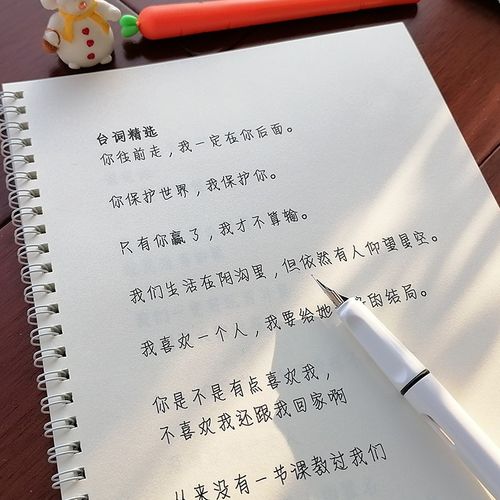 台词精选
你往前走，我一定在你后面。
你保护世界，我保护你。
只有你赢了，我才不算输。
我们生活在阴沟里，但依然有人仰望星空。
我喜欢一个人，我要给她 的结局。
你是不是有点喜欢我，
不喜欢我还跟我回家啊
从来没有一节课教过我们